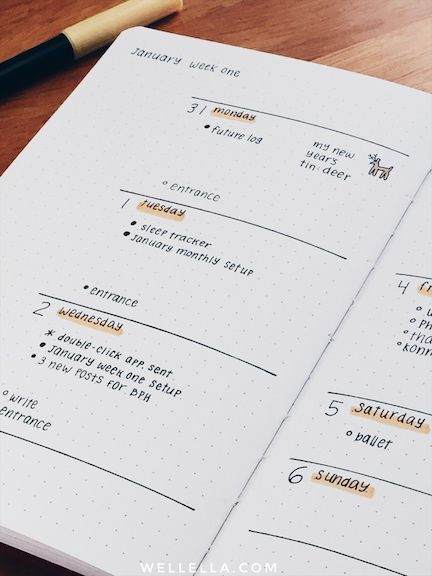 January week one
31 monday
• future log
my new
years
tin: deer
◦ entrance
1 Tuesday
• sleep tracker
• January monthly setup
• entrance
2 wednesday
* double-click app. sent
• January week one setup
• 3 new posts for BPH
◦ write
entrance
4
5 Saturday
◦ ballet
6 Sunday
WELLELLA.COM